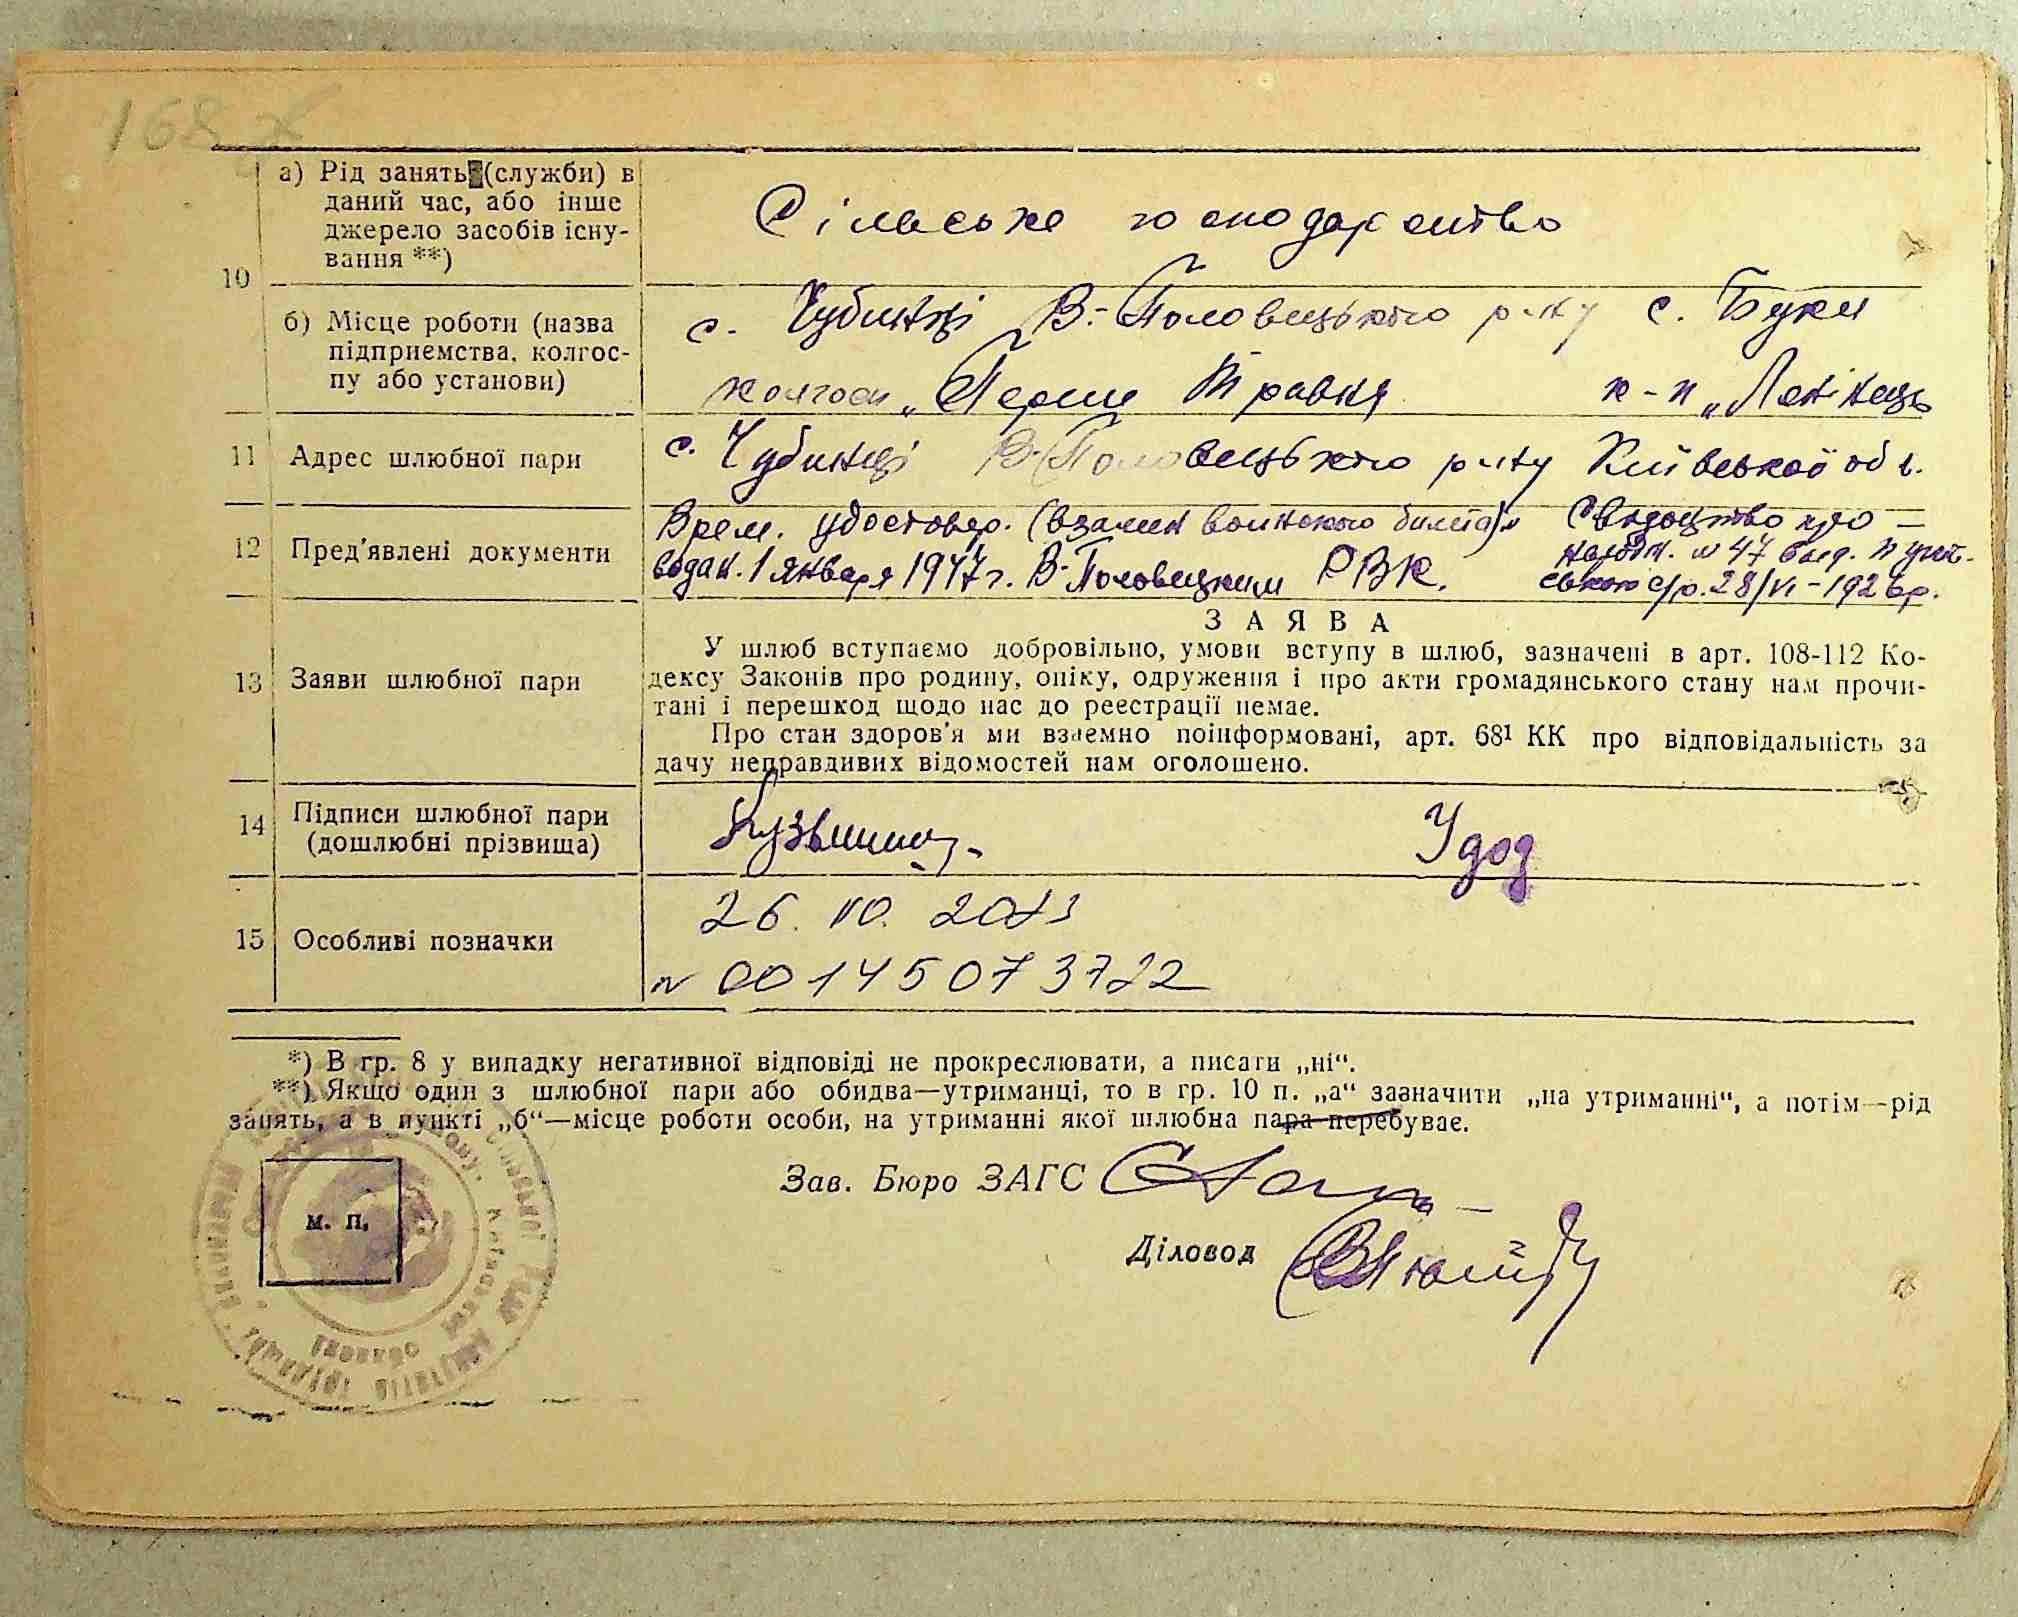 168
10
а) Рід занять (служби) в
даний час, або інше
джерело засобів існу-
вання **)
Сільське господарство
б) Місце роботи (назва
підприємства, колгос-
пу або установи)
с. Чубинці В.-Половецького р-ну с. Буки
колгосп „Перше Травня к-п „Ленінець
11 Адрес шлюбної пари
с. Чубинці В-Половецького р-ну Київської обл.
12 Пред'явлені документи
Врем. удостовер. (взамен воинского билета)
выдан. 1 января 1947 г. В-Половецким РВК.
Свідоцтво про
народж. № 47 вид.
с/р. 28/VI-1926р.
13 Заяви шлюбної пари
ЗАЯВА
У шлюб вступаємо добровільно, умови вступу в шлюб, зазначені в арт. 108-112 Ко-
дексу Законів про родину, опіку, одруження і про акти громадянського стану нам прочи-
тані і перешкод щодо нас до реєстрації немає.
Про стан здоров'я ми взаємно поінформовані, арт. 68¹ КК про відповідальність за
дачу неправдивих відомостей нам оголошено.
14 Підписи шлюбної пари
(дошлюбні прізвища)
Удод
15 Особливі позначки
26. 10.
№ 00145073722
*) В гр. 8 у випадку негативної відповіді не прокреслювати, а писати „ні“.
**) Якщо один з шлюбної пари або обидва—утриманці, то в гр. 10 п. „а“ зазначити „на утриманні“, а потім—рід
занять, а в пункті „б“—місце роботи особи, на утриманні якої шлюбна пара перебуває.
Зав. Бюро ЗАГС
Діловод
м. п.